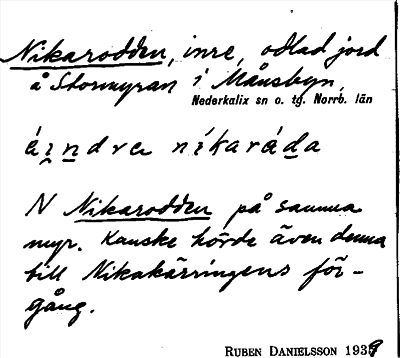 Nikarodden, inre, odlad jord
å Stormyran i Månsbyn,
Nederkalix sn o. tg. Norrb. län
áindra níkaráda
N Nikarodden på samma
myr. Kanske hörde även denna
till Nikakärringens för-
gång.
RUBEN DANIELSSON 1939